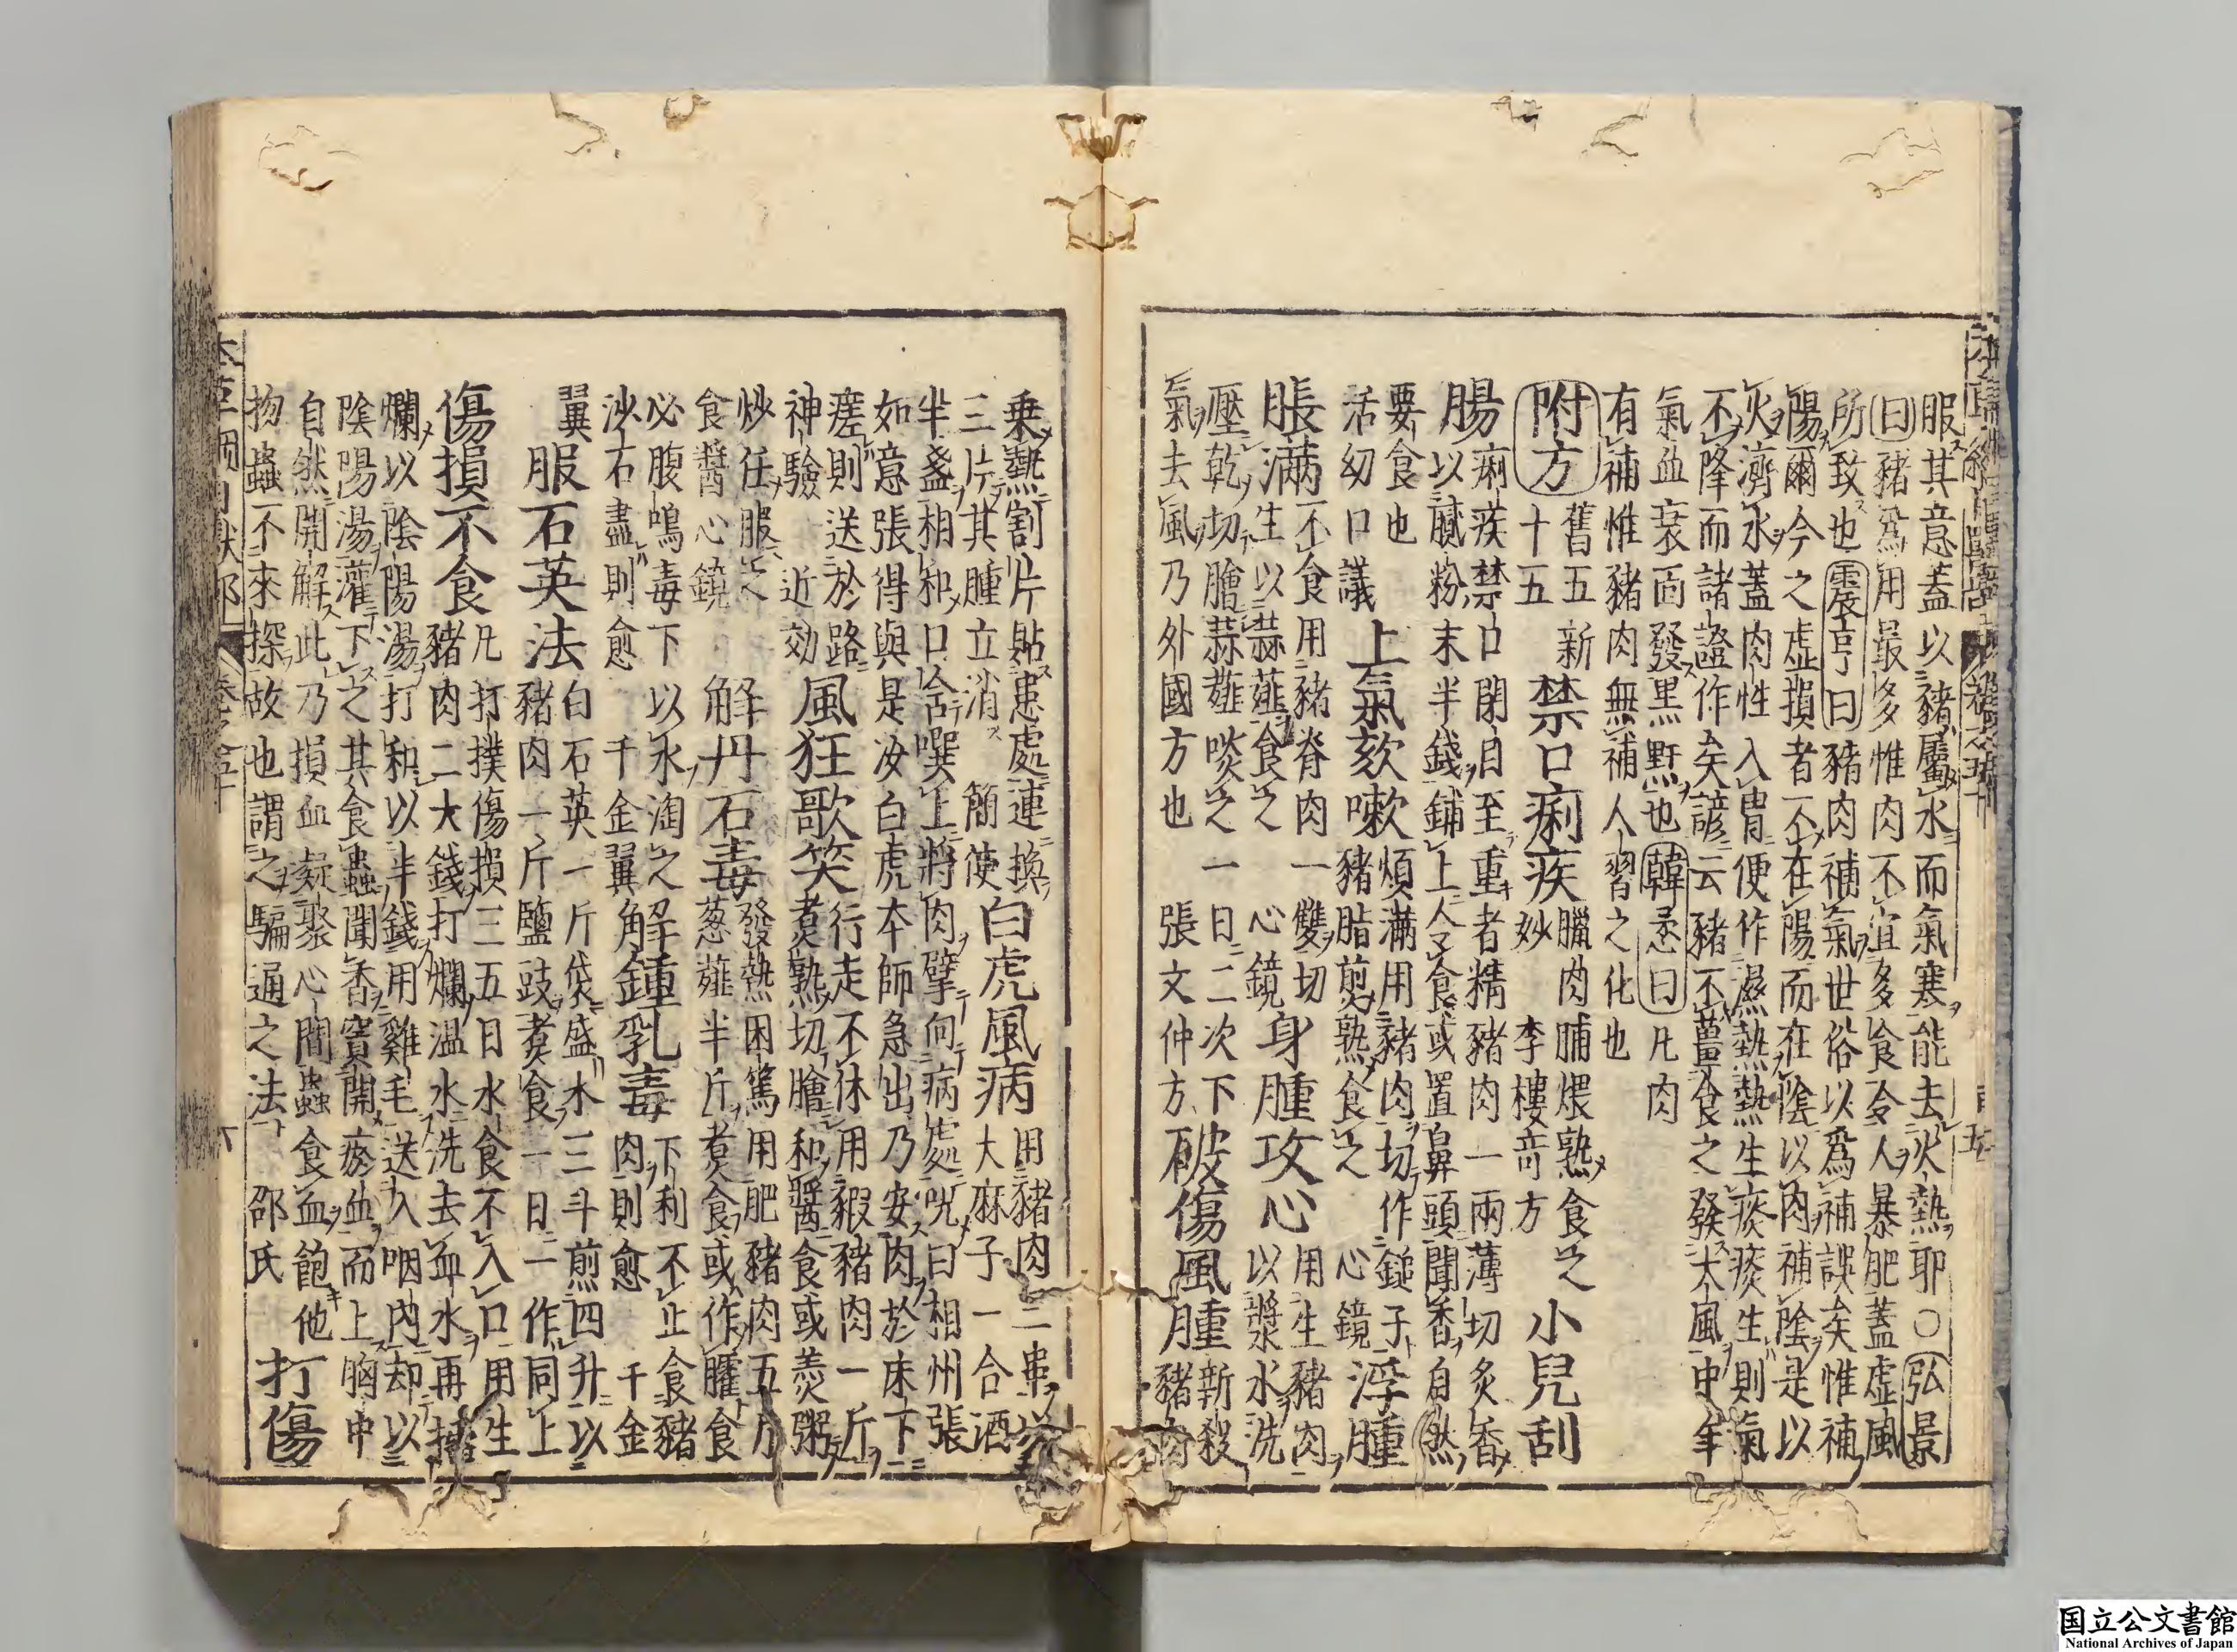 服其意蓋以豬屬水而氣寒能去火熱耶○弘景
曰豬為用最多惟肉不宜多食令人暴肥蓋虛風
所致也震亨曰豬肉補氣世俗以為補誤矣惟補
陽爾今之虛損者不在陽而在陰以肉補陰是以
火濟水蓋肉性入胃便作濕熱熱生痰痰生則氣
不降而諸證作矣諺云豬不薑食之發大風中年
氣血衰面發黑䵟也韓𢙢曰凡肉
有補惟豬肉無補人習之化也
附方
舊五新
十五
禁口痢疾
臘肉脯煨熟食之
妙 李樓奇方
小兒刮
腸
痢疾禁口閉目至重者精豬肉一兩薄切炙香
以膩粉末半錢鋪上令食或置鼻頭聞香自然
要食也
活幼口議
上氣欬嗽
煩滿用豬肉切作䭔子
豬脂煎熟食之 心鏡
浮腫
脹滿
不食用豬脊肉一雙切
生以蒜薤食之 心鏡
身腫攻心
用生豬肉
以漿水洗
壓乾切膾蒜薤啖之一日二次下
氣去風乃外國方也 張文仲方
破傷風腫
新殺
豬肉
乘熱割片貼患處連換
三片其腫立消 簡便
白虎風病
用豬肉三串以
大麻子一合酒
半盞相和口含噀上將肉擘向病處咒曰相州張
如意張得與是汝白虎本師急出乃安肉於床下
瘥則送於路
神驗 近効
風狂歌笑
行走不休用豭豬肉一斤
煮熟切膾和醬食或羹粥
炒任服之
食醬心鏡
解丹石毒
發熱困篤用肥豬肉五斤
蔥薤半斤煮食或作臛食
必腹鳴毒下以水淘之
沙石盡則愈 千金翼
解鍾乳毒
下利不止食豬
肉則愈 千金
翼
服石英法
白石英一斤袋盛水三斗煎四升以
豬肉一斤鹽豉煮食一日一作同上
傷損不食
凡打撲傷損三五日水食不入口用生
豬肉二大錢打爛溫水洗去血水再擂
爛以陰陽湯打和以半錢用雞毛送入咽內却以
陰陽湯灌下之其食蟲聞香竇開瘀血而上胸中
自然開解此乃損血凝聚心間蟲食血飽他
物蟲不來探故也謂之騙通之法 邵氏
打傷
国立公文書館
National Archives of Japan